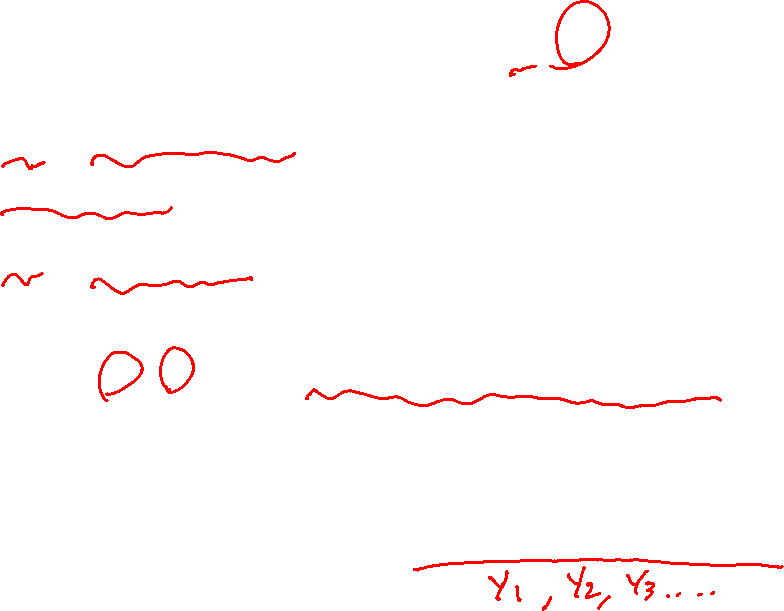 Y1, Y2, Y3....